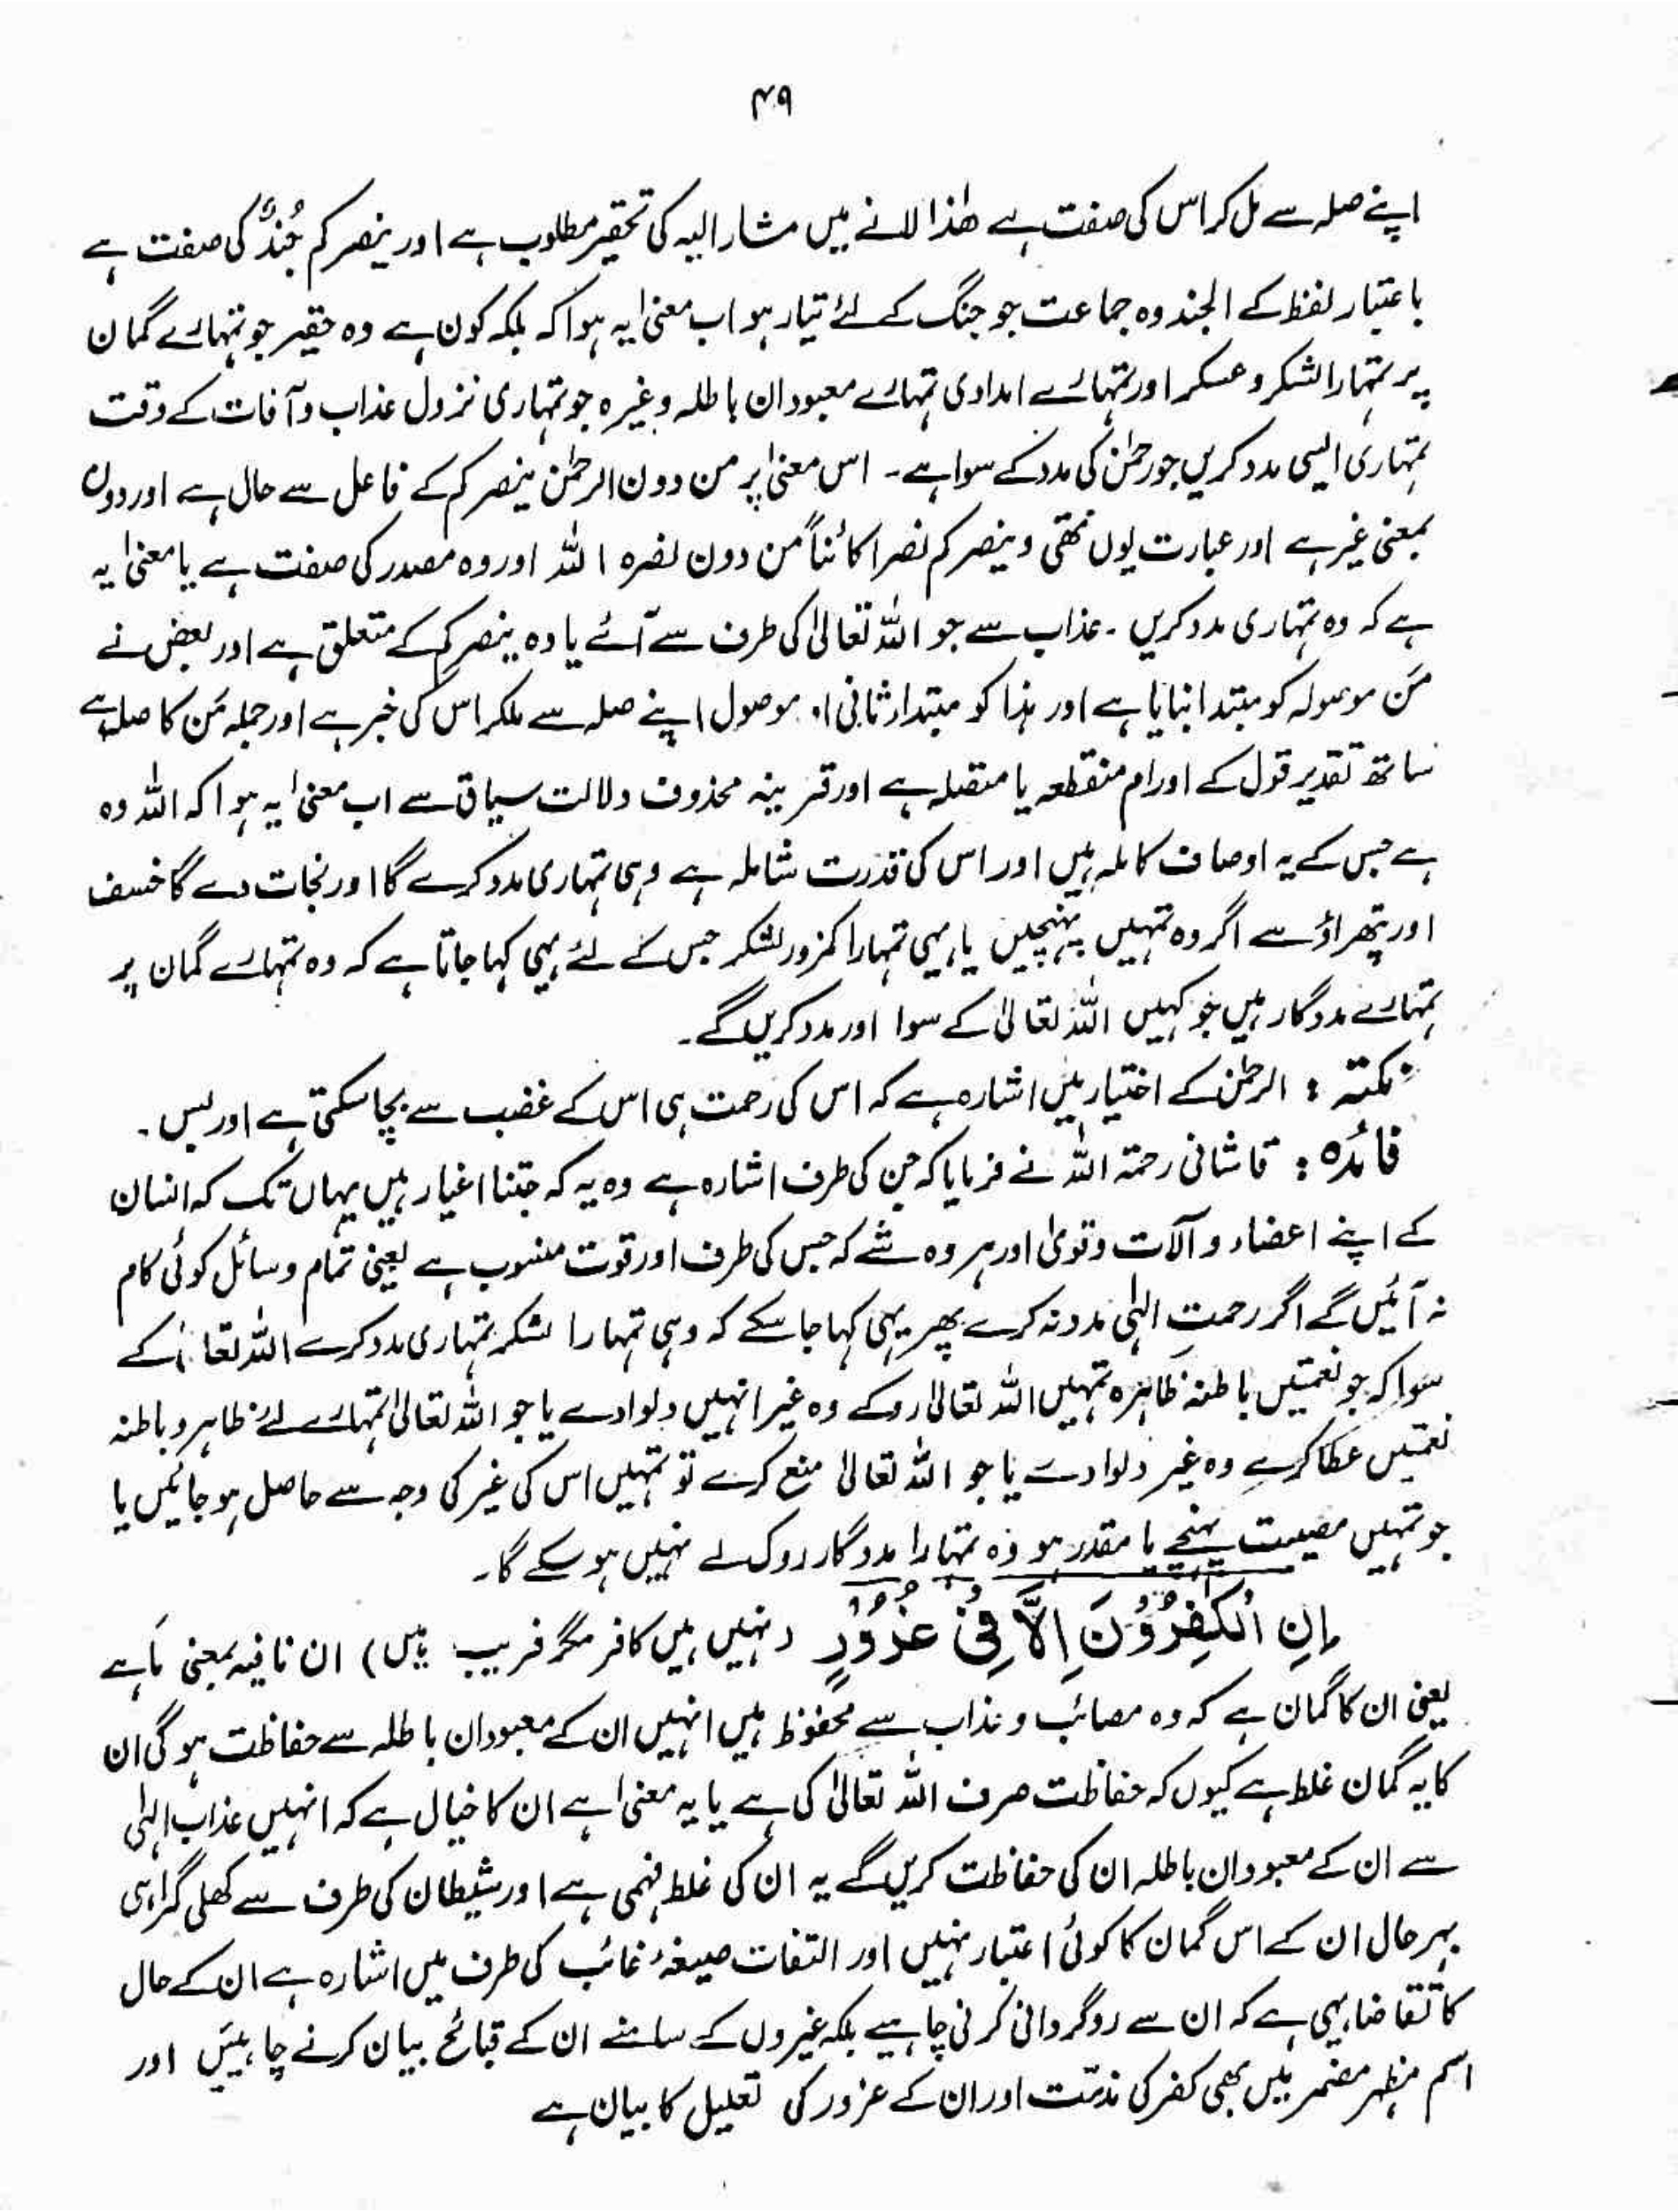 ۴۹
اپنے صلہ سے مل کر اس کی صفت ہے ھٰذا لانے میں مشار الیہ کی تحقیر مطلوب ہے اور ینصرکم جُندٌ کی صفت ہے
باعتبار لفظ کے الجند وہ جماعت جو جنگ کے لئے تیار ہو اب معنیٰ یہ ہوا کہ بلکہ کون ہے وہ حقیر جو تمہارے گمان
پر تمہارا لشکر و عسکر اور تمہارے امدادی تمہارے معبودان باطلہ وغیرہ جو تمہاری نزول عذاب و آفات کے وقت
تمہاری ایسی مدد کریں جو رحمٰن کی مدد کے سوا ہے۔ اس معنیٰ پر من دون الرحمٰن ینصرکم کے فاعل سے حال ہے اور دون
بمعنی غیر ہے اور عبارت یوں تھی و ینصرکم نصرا کائناً من دون نصرہ اللہ اور وہ مصدر کی صفت ہے یا معنیٰ یہ
ہے کہ وہ تمہاری مدد کریں ۔ عذاب سے جو اللہ تعالیٰ کی طرف سے آئے یا وہ ینصرکم کے متعلق ہے اور بعض نے
مَن موصولہ کو مبتدا بنایا ہے اور ہذا کو مبتدا ثانی اور موصول اپنے صلہ سے ملکر اس کی خبر ہے اور جملہ مَن کا صلہ ہے
ساتھ تقدیر قول کے اور ام منقطعہ یا متصلہ ہے اور قرینہ محذوف دلالت سیاق سے اب معنیٰ یہ ہوا کہ اللہ وہ
ہے جس کے یہ اوصاف کاملہ ہیں اور اس کی قدرت شاملہ ہے وہی تمہاری مدد کرے گا اور نجات دے گا خسف
اور پتھراؤ سے اگر وہ تمہیں پہنچیں یا یہی تمہارا کمزور لشکر جس کے لئے یہی کہا جاتا ہے کہ وہ تمہارے گمان پر
تمہارے مددگار ہیں جو کہیں اللہ تعالیٰ کے سوا اور مدد کریں گے۔
نکتہ : الرحمٰن کے اختیار میں اشارہ ہے کہ اس کی رحمت ہی اس کے غضب سے بچا سکتی ہے اور بس ۔
فائدہ : قاشانی رحمۃ اللہ نے فرمایا کہ جن کی طرف اشارہ ہے وہ یہ کہ جتنا اغیار ہیں یہاں تک کہ انسان
کے اپنے اعضاء و آلات و قویٰ اور ہر وہ شے کہ جس کی طرف اور قوت منسوب ہے یعنی تمام وسائل کوئی کام
نہ آئیں گے اگر رحمتِ الٰہی مدد نہ کرے پھر یہی کہا جا سکے کہ وہی تمہارا لشکر تمہاری مدد کرے اللہ تعالیٰ کے
سوا کہ جو نعمتیں باطنہ ظاہرہ تمہیں اللہ تعالیٰ روکے وہ غیر انہیں دلوادے یا جو اللہ تعالیٰ تمہارے لئے ظاہر و باطنہ
نعمتیں عطا کرے وہ غیر دلوادے یا جو اللہ تعالیٰ منع کرے تو تمہیں اس کی غیر کی وجہ سے حاصل ہو جائیں یا
جو تمہیں مصیبت پہنچے یا مقدر ہو وہ تمہارا مددگار روک لے نہیں ہو سکے گا۔
اِنِ الْکٰفِرُوْنَ اِلَّا فِیْ غُرُوْرٍ (نہیں ہیں کافر مگر فریب میں) ان نافیہ بمعنی مَا ہے
یعنی ان کا گمان ہے کہ وہ مصائب و عذاب سے محفوظ ہیں انہیں ان کے معبودان باطلہ سے حفاظت ہو گی ان
کا یہ گمان غلط ہے کیوں کہ حفاظت صرف اللہ تعالیٰ کی ہے یا یہ معنیٰ ہے ان کا خیال ہے کہ انہیں عذاب الٰہی
سے ان کے معبودان باطلہ ان کی حفاظت کریں گے یہ ان کی غلط فہمی ہے اور شیطان کی طرف سے کھلی گمراہی
بہر حال ان کے اس گمان کا کوئی اعتبار نہیں اور التفات صیغۂ غائب کی طرف میں اشارہ ہے ان کے حال
کا تقاضا یہی ہے کہ ان سے روگردانی کرنی چاہیے بلکہ غیروں کے سامنے ان کے قبائح بیان کرنے چاہئیں اور
اسم مظہر مضمر میں بھی کفر کی مذمّت اور ان کے غرور کی تعلیل کا بیان ہے